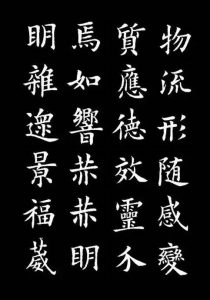 物流形随感變
質應德效靈介
焉如響恭恭明
明雜遝景福葳